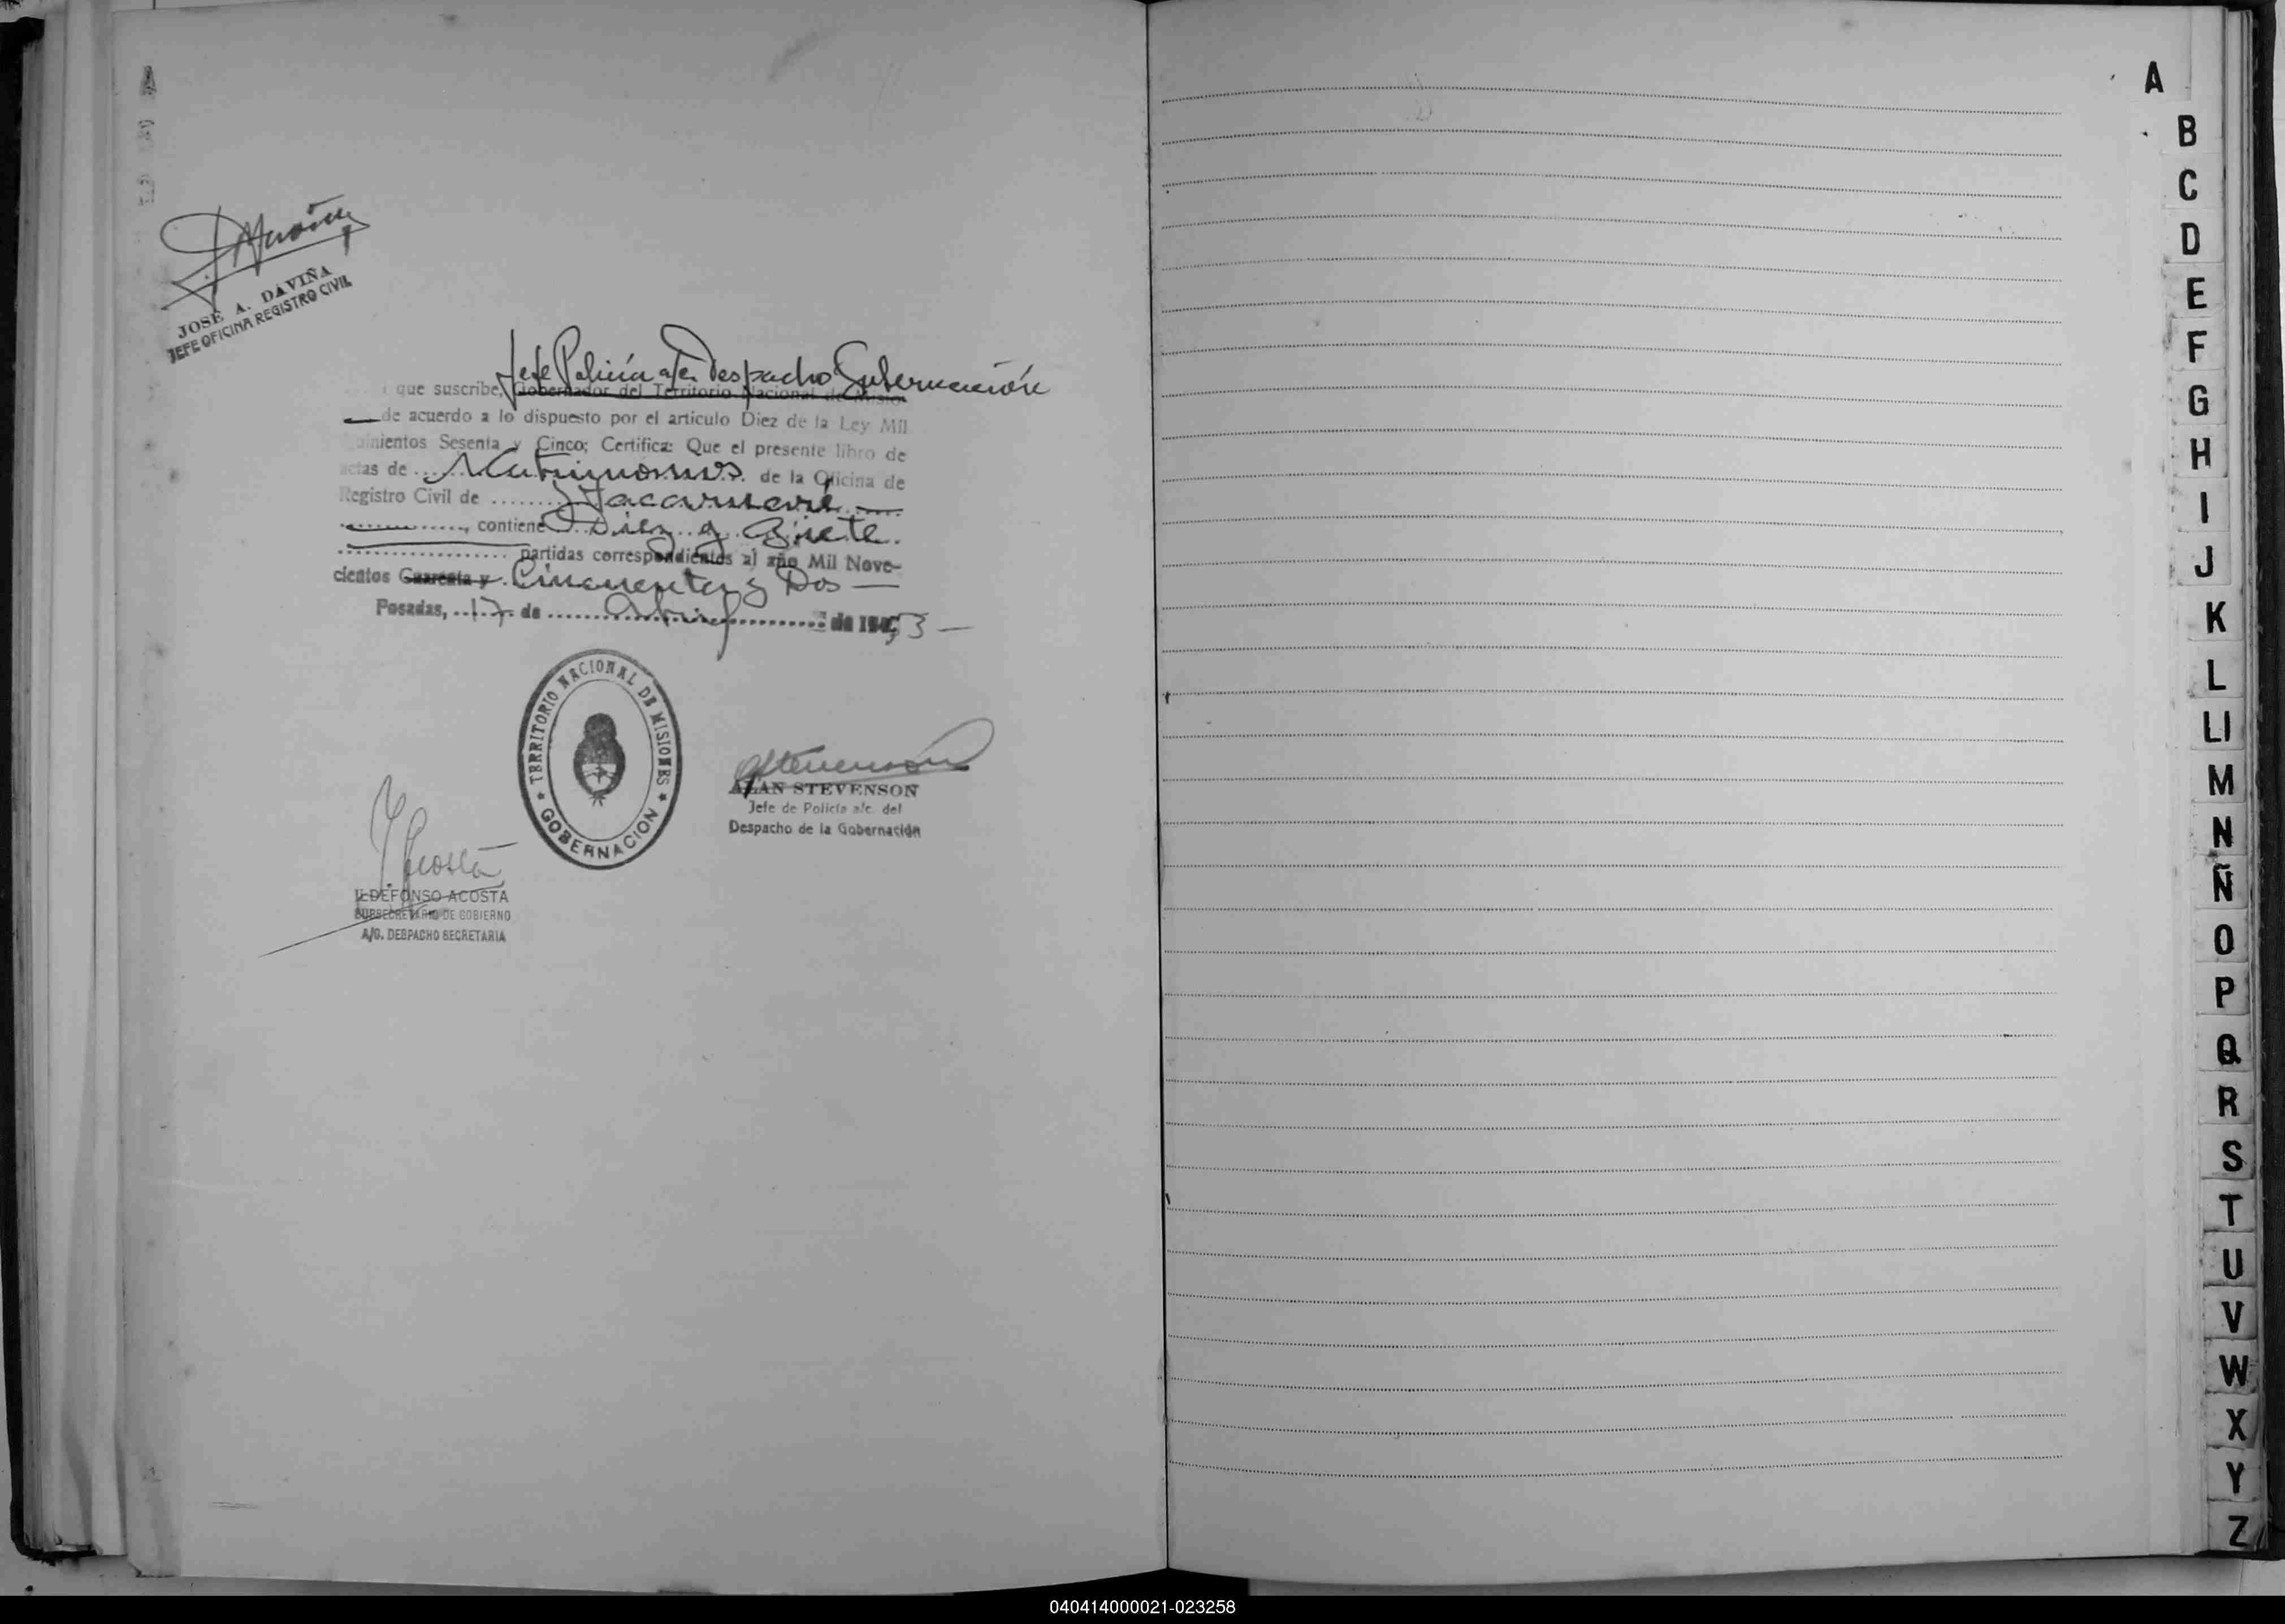 JOSÉ A. DAVIÑA
JEFE OFICINA REGISTRO CIVIL
Jefe Policía a/c. Despacho Gobernación
que suscribe, Gobernador del Territorio Nacional de Misio
de acuerdo a lo dispuesto por el artículo Diez de la Ley Mil
uinientos Sesenta y Cinco; Certifica: Que el presente libro de
actas de ... Matrimonios de la Oficina de
Registro Civil de ........ Itacaruaré
............, contiene Diez y Siete.
.................. partidas correspondientes al año Mil Nove-
cientos Cuarenta y Cincuenta y Dos —
Posadas, 17 de Abril de 1953 —
★ TERRITORIO NACIONAL DE MISIONES ★
GOBERNACION
AStevenson
ALAN STEVENSON
Jefe de Policía a/c. del
Despacho de la Gobernación
Y Acosta
ILDEFONSO ACOSTA
SUBSECRETARIO DE GOBIERNO
A/C. DESPACHO SECRETARIA
A
B
C
D
E
F
G
H
I
J
K
L
Ll
M
N
Ñ
O
P
Q
R
S
T
U
V
W
X
Y
Z
040414000021-023258